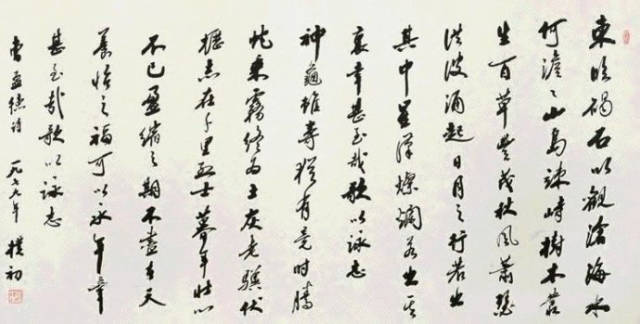 東臨碣石以觀滄海水
何澹々山島竦峙樹木叢
生百草豐茂秋風蕭瑟
洪波涌起日月之行若出
其中星漢燦爛若出其
裏幸甚至哉歌以詠志
神龜雖壽猶有竟時騰
蛇乘霧終為土灰老驥伏
櫪志在千里烈士暮年壯心
不已盈縮之期不盡在天
養怡之福可以永年幸
甚至哉歌以詠志
曹孟德詩 一九七年 樸初